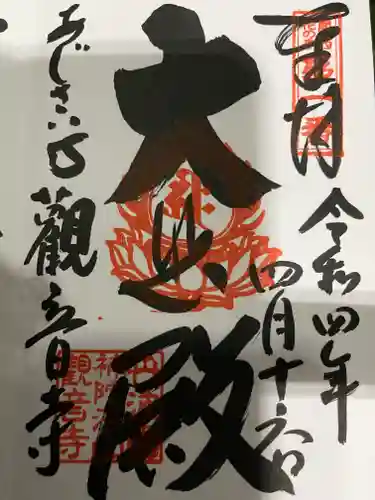 奉拝
令和四年
四月十六日
大悲殿
あじさい寺
觀音寺
観音寺